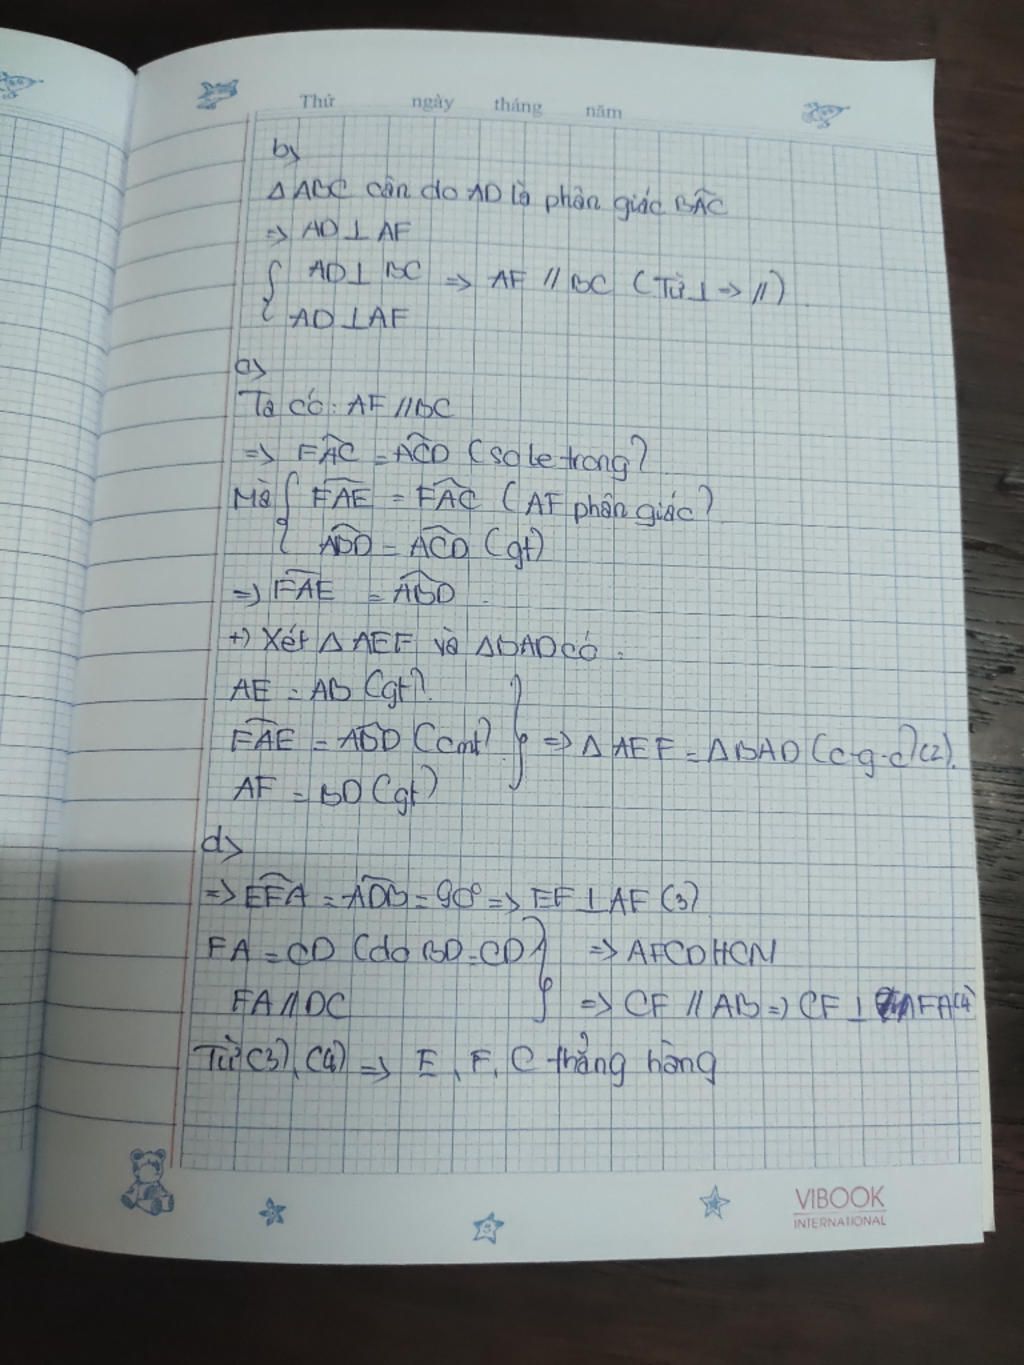 Thứ ngày tháng năm
b)
Δ ABC cân do AD là phân giác BAC
=> AD ⊥ AF
{ AD ⊥ BC => AF // BC (Từ ⊥ -> //)
AD ⊥ AF
c)
Ta có: AF // BC
=> FAC = ACD (so le trong)
Mà { FAE = FAC (AF phân giác)
ABD = ACD (gt)
=> FAE = ABD
+) Xét Δ AEF và Δ BAD có:
AE = AB (gt)
FAE = ABD (cmt) } => Δ AEF = Δ BAD (c-g-c) (2).
AF = BD (gt)
d)
=> EFA = ADB = 90° => EF ⊥ AF (3)
FA = CD (do BD = CD) } => AFCD HCN
FA // DC => CF // AB => CF ⊥ FA (4)
Từ (3), (4) => E, F, C thẳng hàng
VIBOOK
INTERNATIONAL